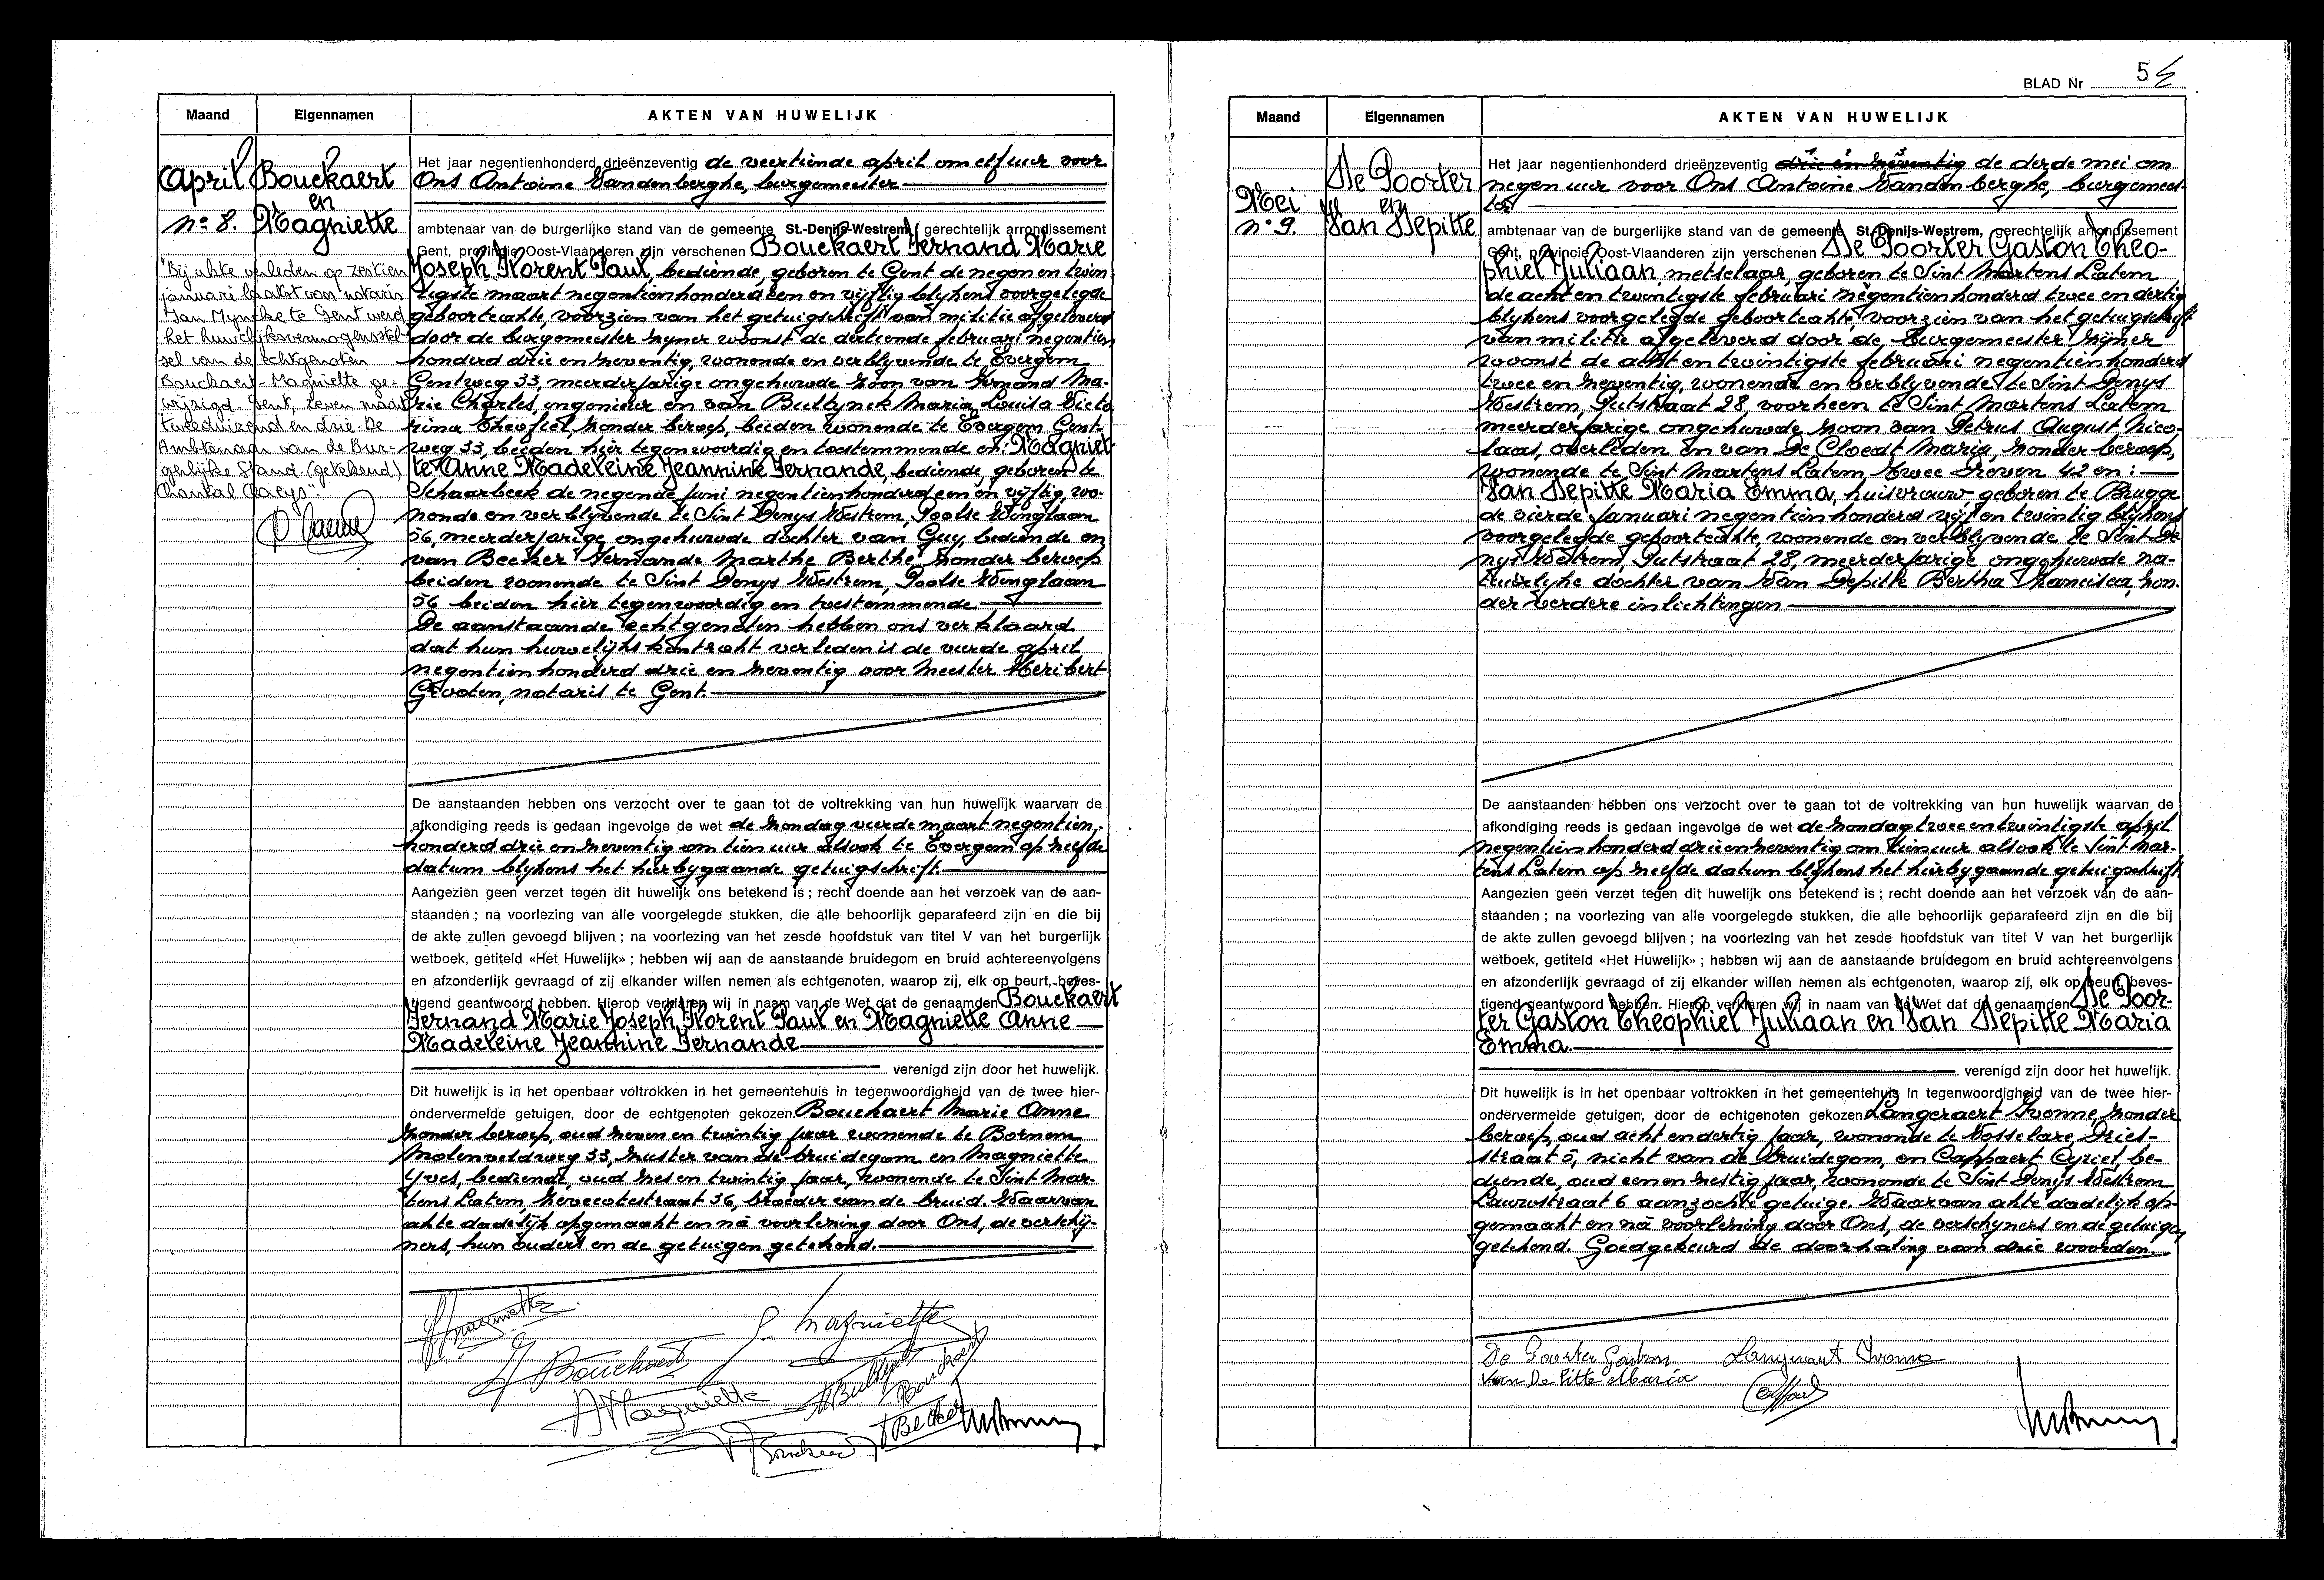 Maand Eigennamen AKTEN VAN HUWELIJK
April Bouckaert
en
n° 8. Magniette
"Bij akte verleden op zestien
januari laatst voor notaris
Jan Myncke te Gent werd
het huwelijksvermogensstel-
sel van de echtgenoten
Bouckaert-Magniette ge-
wijzigd. Gent, zeven maart
tweeduizend en drie. De
Ambtenaar van de Bur-
gerlijke Stand. (getekend)
Chantal Claeys".
Het jaar negentienhonderd drieënzeventig de veertiende april om elf uur voor
Ons Antoine Vandenberghe, burgemeester
ambtenaar van de burgerlijke stand van de gemeente St.-Denijs-Westrem, gerechtelijk arrondissement
Gent, provincie Oost-Vlaanderen zijn verschenen Bouckaert Fernand Marie
Joseph Florent Paul, bediende, geboren te Gent de negen en twin
tigste maart negentienhonderd een en vijftig blijkens voorgelegde
geboorteakte, voorzien van het getuigschrift van militie afgeleverd
door de burgemeester zijner woonst de dertiende februari negentien
honderd drie en zeventig, wonende en verblyvende te Evergem
Gentweg 33, meerderjarige ongehuwde zoon van Armand Ma-
rie Charles, ingenieur en van Bultynck Maria Louisa Victo
rina Theofiel, zonder beroep, beiden wonende te Evergem Gent
weg 33, beiden hier tegenwoordig en toestemmende en: Magniet-
te Anne Madeleine Jeannine Fernande, bediende, geboren te
Schaarbeek de negende juni negentienhonderd een en vijftig, wo-
nende en verblyvende te Sint Denys Westrem, Poolse Winglaan
56, meerderjarige ongehuwde dochter van Guy, bediende en
van Becker Fernande Marthe Berthe zonder beroep
beiden wonende te Sint Denys Westrem, Poolse Winglaan
56 beiden hier tegenwoordig en toestemmende
De aanstaande echtgenoten hebben ons verklaard
dat hun huwelijkskontrakt verleden is de vierde april
negentienhonderd drie en zeventig voor Meester Heribert
Grooten, notaris te Gent.
De aanstaanden hebben ons verzocht over te gaan tot de voltrekking van hun huwelijk waarvan de
afkondiging reeds is gedaan ingevolge de wet de zondag vierde maart negentien,
honderd drie en zeventig om tien uur alsook te Evergem op zelfde
datum blijkens het hierbygaande getuigschrift.
Aangezien geen verzet tegen dit huwelijk ons betekend is ; recht doende aan het verzoek van de aan-
staanden ; na voorlezing van alle voorgelegde stukken, die alle behoorlijk geparafeerd zijn en die bij
de akte zullen gevoegd blijven ; na voorlezing van het zesde hoofdstuk van titel V van het burgerlijk
wetboek, getiteld «Het Huwelijk» ; hebben wij aan de aanstaande bruidegom en bruid achtereenvolgens
en afzonderlijk gevraagd of zij elkander willen nemen als echtgenoten, waarop zij, elk op beurt, beves-
tigend geantwoord hebben. Hierop verklaren wij in naam van de Wet dat de genaamden Bouckaert
Fernand Marie Joseph Florent Paul en Magniette Anne
Madeleine Jeannine Fernande
verenigd zijn door het huwelijk.
Dit huwelijk is in het openbaar voltrokken in het gemeentehuis in tegenwoordigheid van de twee hier-
ondervermelde getuigen, door de echtgenoten gekozen Bouckaert Marie Anne
zonder beroep, oud zeven en twintig jaar wonende te Bornem
Molenveldweg 33, zuster van de bruidegom en Magniette
Yves, bediende, oud zes en twintig jaar, wonende te Sint Mar-
tens Latem, Xevecotestraat 36, broeder van de bruid. Waarvan
akte dadelijk opgemaakt en na voorlezing door Ons, de verschij-
ners, hun ouders en de getuigen getekend.
Magniette
G. Magniette
Bouckaert
Bultynck
Bouckaert
AMagniette
Becker
Bouckaert
BLAD Nr 5
Maand Eigennamen AKTEN VAN HUWELIJK
De Poorter
Mei en
n° 9. Van Depitte
Het jaar negentienhonderd drieënzeventig drie en zeventig de derde mei om
negen uur voor Ons Antoine Vandenberghe, burgemees-
ter
ambtenaar van de burgerlijke stand van de gemeente St.-Denijs-Westrem, gerechtelijk arrondissement
Gent, provincie Oost-Vlaanderen zijn verschenen De Poorter Gaston Theo-
phiel Juliaan, metselaar, geboren te Sint Martens Latem
de acht en twintigste februari negentienhonderd twee en dertig
blykens voorgelegde geboorteakte, voorzien van het getuigschrift
van militie afgeleverd door de Burgemeester zijner
woonst de acht en twintigste februari negentienhonderd
twee en zeventig, wonende en verblyvende te Sint Denys
Westrem, Putstraat 28, voorheen te Sint Martens Latem
meerderjarige ongehuwde zoon van Petrus August Nico-
laas, overleden en van De Cloedt Maria, zonder beroep,
wonende te Sint Martens Latem, Twee Dreven 42 en :
Van Depitte Maria Emma, huisvrouw geboren te Brugge
de vierde januari negentienhonderd vijf en twintig blijkens
voorgelegde geboorteakte, wonende en verblyvende te Sint De
nys Westrem, Putstraat 28, meerderjarige ongehuwde na-
tuurlyke dochter van Van Depitte Bertha Francisca, zon-
der verdere inlichtingen
De aanstaanden hebben ons verzocht over te gaan tot de voltrekking van hun huwelijk waarvan de
afkondiging reeds is gedaan ingevolge de wet de zondag twee en twintigste april
negentienhonderd drie en zeventig om tien uur alsook te Sint Mar-
tens Latem op zelfde datum blijkens het hierbygaande getuigschrift
Aangezien geen verzet tegen dit huwelijk ons betekend is ; recht doende aan het verzoek van de aan-
staanden ; na voorlezing van alle voorgelegde stukken, die alle behoorlijk geparafeerd zijn en die bij
de akte zullen gevoegd blijven ; na voorlezing van het zesde hoofdstuk van titel V van het burgerlijk
wetboek, getiteld «Het Huwelijk» ; hebben wij aan de aanstaande bruidegom en bruid achtereenvolgens
en afzonderlijk gevraagd of zij elkander willen nemen als echtgenoten, waarop zij, elk op beurt, beves-
tigend geantwoord hebben. Hierop verklaren wij in naam van de Wet dat de genaamden De Poor-
ter Gaston Theophiel Juliaan en Van Depitte Maria
Emma.
verenigd zijn door het huwelijk.
Dit huwelijk is in het openbaar voltrokken in het gemeentehuis in tegenwoordigheid van de twee hier-
ondervermelde getuigen, door de echtgenoten gekozen Langeraert Yvonne, zonder
beroep, oud acht en dertig jaar, wonende te Vosselare, Driel-
straat 5, nicht van de bruidegom, en Cappaert Cyriel, be-
diende, oud een en zestig jaar, wonende te Sint Denijs Westrem
Lauwstraat 6 aanzochte getuige. Waarvan akte dadelijk op-
gemaakt en na voorlezing door Ons, de verschyners en de getuigen
getekend. Goedgekeurd de doorhaling van drie woorden.
De Poorter Gaston Langeraert Yvonne
Van De Pitte Maria